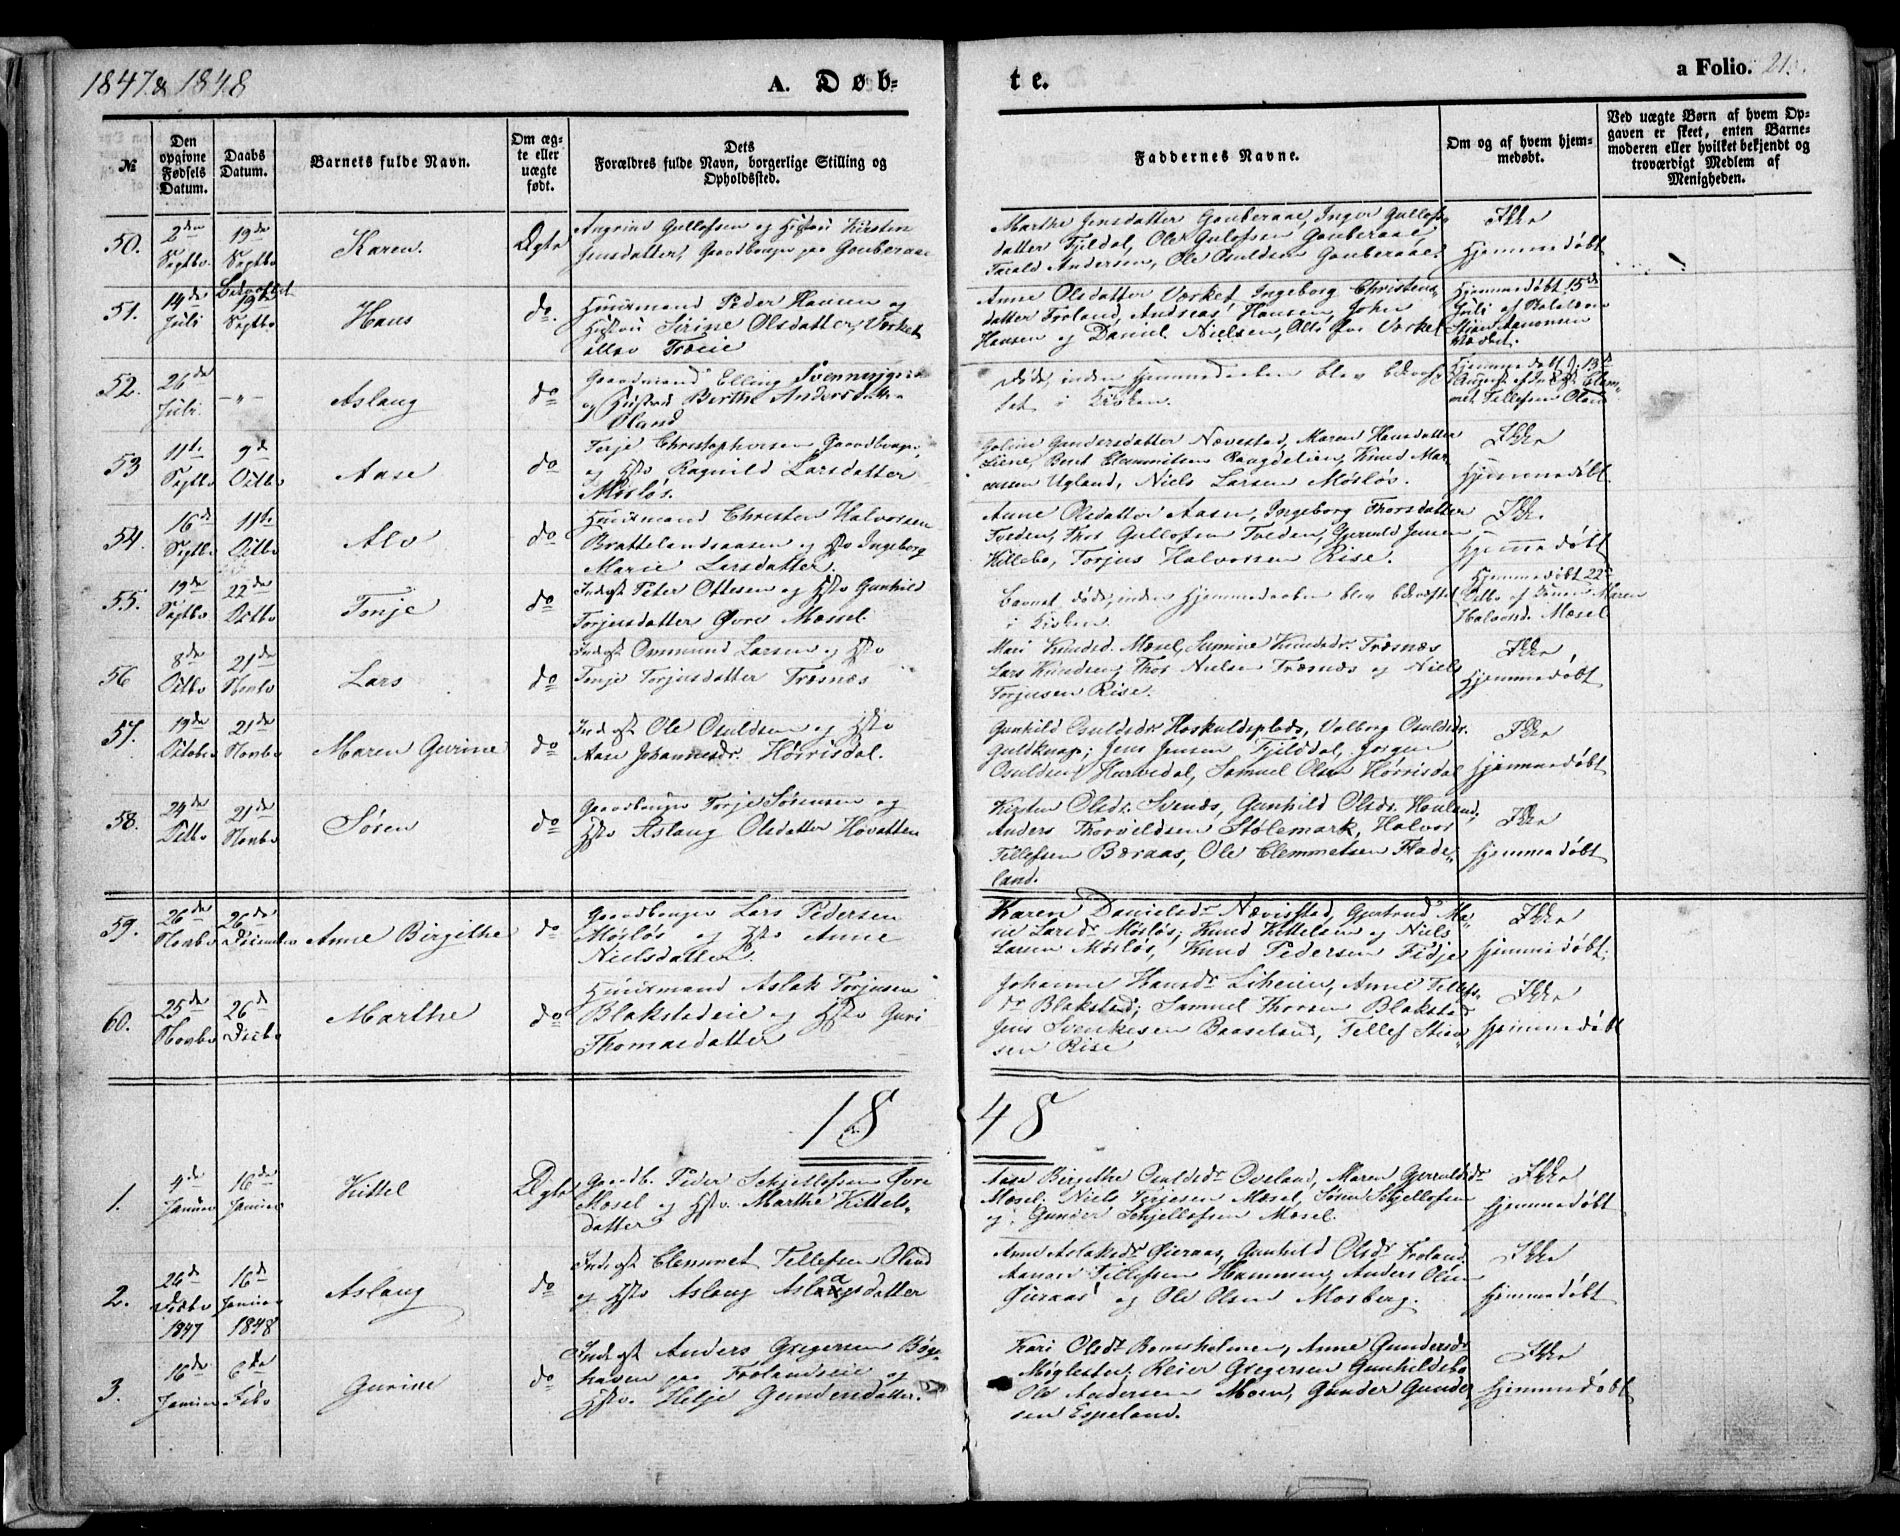 1847 & 1848
A. Døb-
te.
a Folio. 21.
№
Den opgivne Fødsels Datum.
Daabs Datum.
Barnets fulde Navn.
Om ægte eller uægte født.
Dets Forældres fulde Navn, borgerlige Stilling og Opholdssted.
Faddernes Navne.
Om og af hvem hjemmedøbt.
Ved uægte Børn af hvem Opgaven er skeet, enten Barnemoderen eller hvilket bekjendt og troværdigt Medlem af Menigheden.
50.
2den Septbr
19de Septbr
Karen.
Ægte
Gullofsen og Hustru Kirsten
Jensdatter, Gaardbruger paa Gouberaae
Marthe Jensdatter Gouberaae, Inger Gullofs-
datter Fjeldal, Ole Gulofsen Gouberaae
Tarald Andersen, Ole Osuldsen Gouberaae.
Ikke
hjemmedøbt
51.
14de Juli
Bekræftet 19de Septbr
Hans
do.
Huusmand Peder Hansen og
Hustru Sirine Olsdatter, Værket
eller Træeie
Anne Olsdatter Værket, Ingeborg Christens-
datter Froland, Andreas Hansen, John
Hansen og Daniel Nielsen, Alle fra Værket
Hjemmedøbt 15de
Juli af Skolelærer
Stian Aanonsen
Værket.
52.
26de Juli
-"-
Aslaug
do
Gaardmand Elling Svennunsen
og Hustru Berthe Andersdatter
Oland
Døde, inden Hjemmedaaben blev bekræf-
tet i Kirken.
Hjemmedøbt d. 13de
August af Clem-
met Tellefsen Oland
53
11te Septbr
9de Octbr
Aase
do
Terje Christophersen Gaardbruger,
og Hstr Ragnild Larsdatter
Mörlös.
Goline Gundersdatter Nævestad, Maren Hansdatter
Liene, Berit Clemmetsen Raugdelien, Knud Mar-
cussen Ugland, Niels Larsen Mörlös.
Ikke
hjemmedøbt.
54.
16de Septbr
11te Octbr
Alv
do
Huusmand Christen Halvorsen
Brattelandsaasen og Hstr Ingeborg
Marie Larsdatter.
Anne Olsdatter Aasen, Ingeborg Thorsdatter
Tveden, Thor Gullofsen Tveden, Gjeruld Jensen
Hillebo, Torjus Halvorsen Rise.
Ikke
hjemmedøbt
55.
19de Septbr
22de Octbr
Tmje
do
Inderst Peter Ottesen og Hstr Gunhild
Torjusdatter Øvre Messel
Barnet døde, inden Hjemmedaaben blev bekræftet
i Kirken
Hjemmedøbt 22de
Octbr af Konen Maren
Halvorsd. Messel
56
8de Octbr
21de Novbr
Lars
do
Inderst Ommund Larsen og Hstr
Tmje Torjusdatter Træsnæs
Mari Knudsd. Mæsel, Sunnine Knudsdr. Træsnæs
Lars Knudsen, Thor Nielsen Træsnæs og Niels
Torjusen Rise.
Ikke
hjemmedøbt
57.
19de October
21de Novbr
Maren Gurine
do
Inderst Ole Osuldsen og Hstr
Aase Johannesdr. Hörrisdal.
Gunhild Osuldsdr. Hoskuldsplads, Valborg Osuldsdr.
Guldknap; Jens Jensen Fjelddal, Jörgen
Osuldsen Hurvedal, Samuel Olsen Hörrisdal
Ikke
hjemmedøbt
58.
24de Octbr
21de Novbr
Sören
do
Gaardbruger Torje Sørensen og
Hstr Aslaug Olsdatter Hovatten
Kirsten Olsdr. Svenes, Gunhild Olsdr. Houland,
Anders Thorvildsen Stølemark, Halvor
Tellefsen Bæraas, Ole Clemmetsen Flade-
land.
Ikke
hjemmedøbt
59.
26de Novbr
26de December
Anne Birgithe
do
Gaardbruger Lars Pedersen
Mörlös og Hstr Anne
Nielsdatter.
Karen Danielsdr Nævisstad, Gjertrud Ma-
rie Larsdr Mörlös; Knud Kittelsen og Niels
Larsen Mörlös, Knud Pedersen Fidje
Ikke
hjemmedøbt.
60.
25de Novbr
26de Decbr
Marthe
do
Huusmand Aslak Torjusen
Blakstadeie og Hstr Guri
Thomasdatter
Johanne Hansdr Liheien, Anne Tellefs-
dr Blakstad; Samuel Thorsen Blakstad
Jens Svenkesen Baaseland, Tellef Stian-
sen Rise
Ikke
hjemmedøbt
1848
1.
4de Januar
16de Januar
Kittel
Ægte
Gaardb. Peder Schjellefsen Øvre
Mosel og Hstr. Marthe Kittels-
datter
Aase Birgithe Osuldsdr Oveland, Maren Gjeruldsdr
Mosel. Niels Terjesen Mosel, Sören Schjellefsen
og Gunder Schjellofsen Mosel.
Ikke
hjemmedøbt
2.
26de Decbr 1847
16de Januar 1848
Aslaug
do
Inderst Clemmet Tellefsen Oland
og Hstr Aslaug Aslaagsdatter
Anne Aslaksdr Gieraas, Gunhild Olsdr Froland.
Aanon Tellefsen Hammen, Anders Olsen
Gieraas og Ole Olsen Mosberg.
Ikke
hjemmedøbt
3.
16de Januar
6te Febr
Gurine
do
Inderst Anders Gregersen Bøge-
haven paa Frolandseie og
Hstr. Helje Gundersdatter.
Kari Olsdr Bomsholmen, Anne Gundersdr
Möglestu; Reier Gregersen Gunhildsbo
Ole Andersen Moen, Gunder Gunder-
sen Espeland.
Ikke
hjemmedøbt